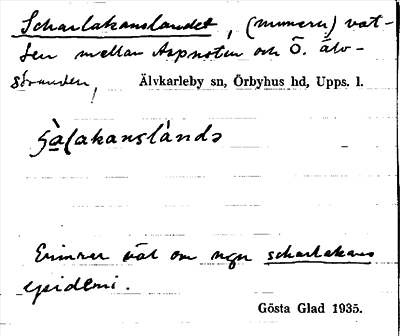 Scharlakanslandet, (numera) vat-
ten mellan Aspnoten och Ö. älv-
stranden, Älvkarleby sn, Örbyhus hd, Upps. l.
Erinrar väl om ngn scharlakans
epidemi.
Gösta Glad 1935.